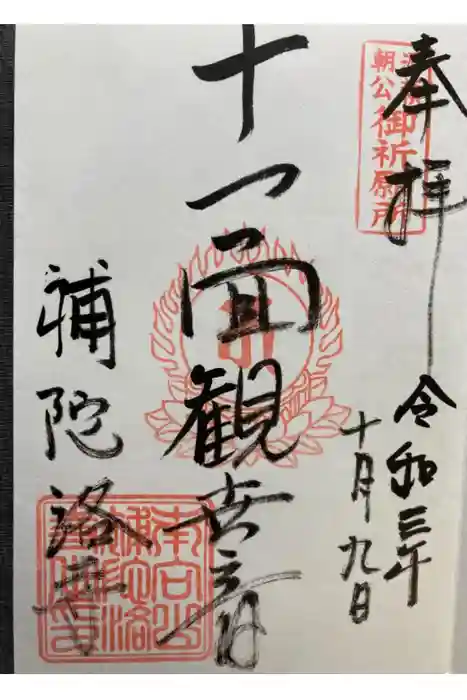 奉拝
令和三年
十月九日
十一面観世音
補陀洛寺
朝公
御祈願所
南向山
補陀洛